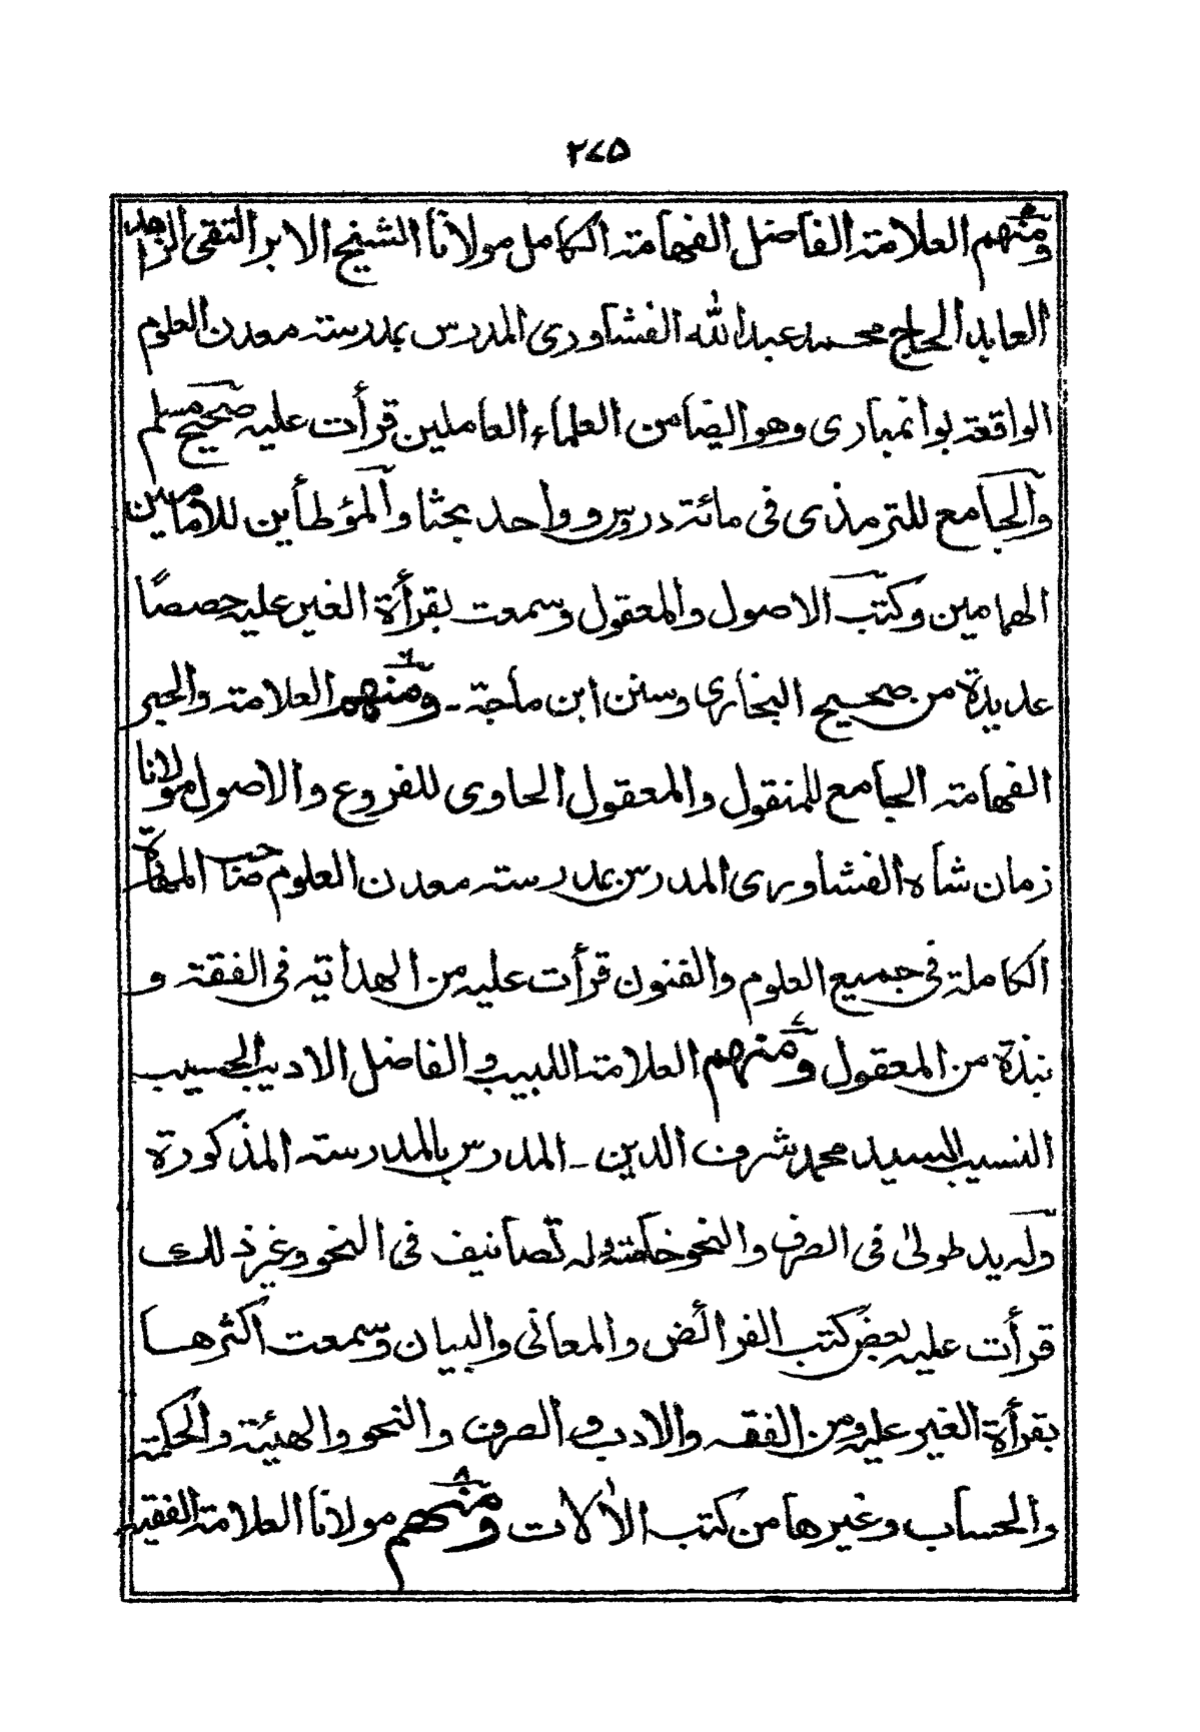 ٢٧٥
ومنهم العلامة الفاضل الفهامة الكامل مولانا الشيخ الابر التقى الزاهد
العابد الحاج محمد عبدالله الفشاورى المدرس بمدرسة معدن العلوم
الواقعة بوانمبارى وهو ايضا من العلماء العاملين قرأت عليه صحيح مسلم
والجامع للترمذى فى مائة دروس وواحد بحثا والمؤطأين للامامين
الهمامين وكتب الاصول والمعقول وسمعت بقرأة الغير عليه حصصًا
عديدة من صحيح البخارى وسنن ابن ماجة ـ ومنهم ٦ العلامة والحبر
الفهامة الجامع للمنقول والمعقول الحاوى للفروع والاصول مولانا
زمان شاه الفشاورى المدرس بمدرسة معدن العلوم صاحب المهارة
الكاملة فى جميع العلوم والفنون قرأت عليه من الهداية فى الفقة و
نبذة من المعقول ومنهم ٧ العلامة اللبيب والفاضل الاديب الحسيب
النسيب السيد محمد شرف الدين ـ المدرس بالمدرسة المذكورة
وله يد طولىٰ فى الصرف والنحو خاصة وله تصانيف فى النحو وغيرذلك
قرأت عليه بعض كتب الفرائض والمعانى والبيان وسمعت اكثرها
بقرأة الغير عليه ومن الفقه والادب والصرف والنحو والهيئة والحكمة
والحساب وغيرها من كتب الاٰلات ومنهم ٨ مولانا العلامة الفقيه